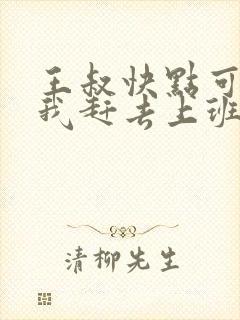 王叔快點可
我赶去上班
清柳先生